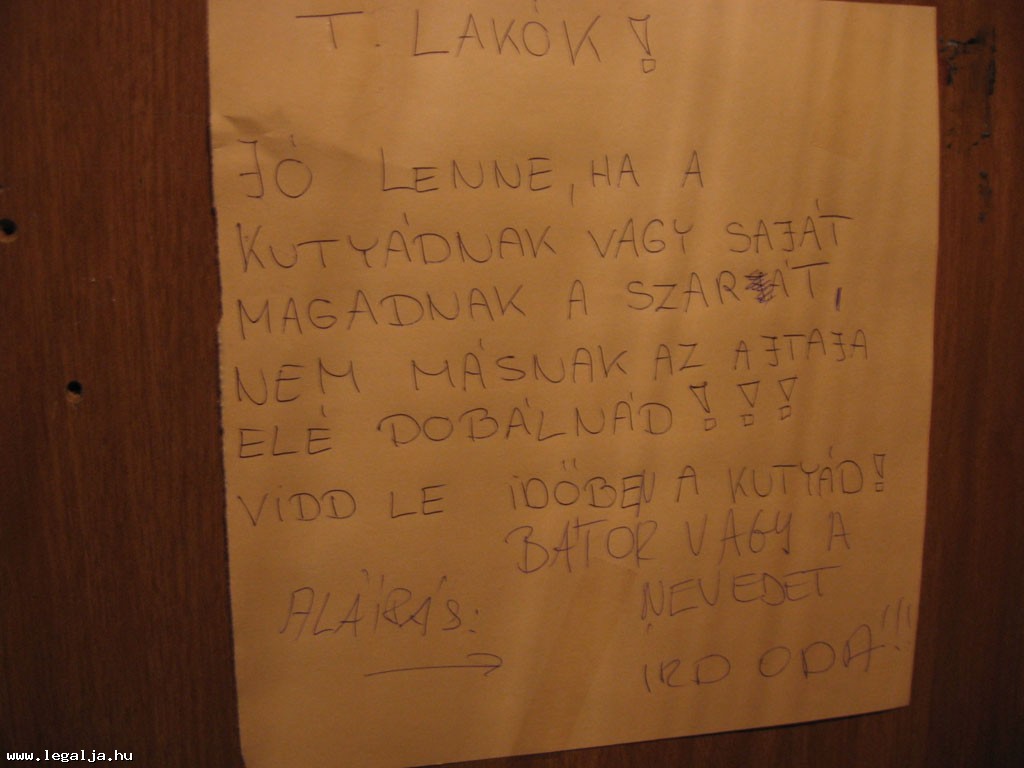 T. LAKÓK!
JÓ LENNE, HA A
KUTYÁDNAK VAGY SAJÁT
MAGADNAK A SZARÁT,
NEM MÁSNAK AZ AJTAJA
ELÉ DOBÁLNÁD!!!
VIDD LE IDŐBEN A KUTYÁD!
BÁTOR VAGY A
NEVEDET
ÍRD ODA!!!
ALÁÍRÁS:
www.legalja.hu